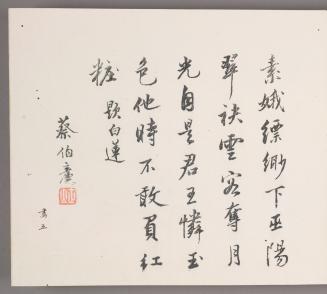 素娥縹緲下巫陽
翠袂雲容奪月
光自是君王憐玉
色他時不敢買紅
粧 題白蓮
蔡伯
書五